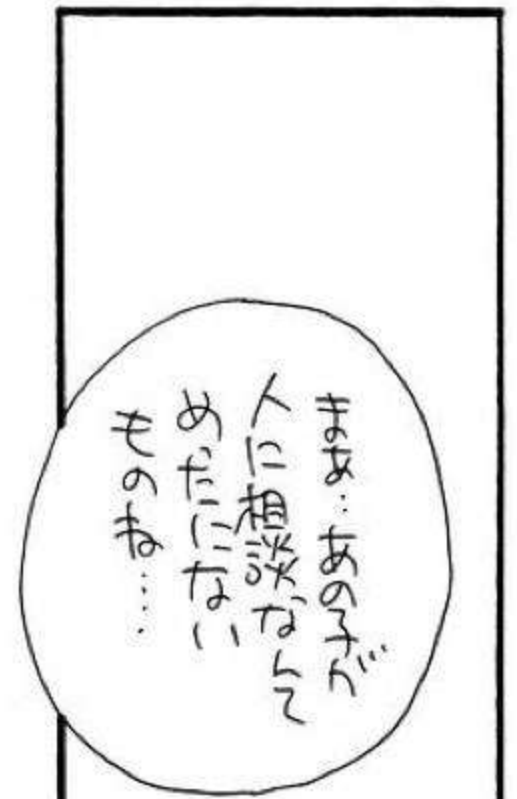 まあ‥あの子が
人に相談なんて
めったにない
ものね‥‥